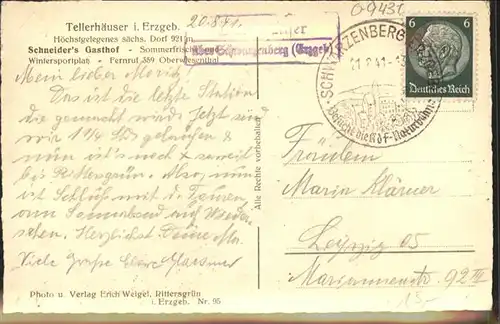 Tellerhäuser i. Erzgeb.
Höchstgelegenes sächs. Dorf 921 m
Schneider's Gasthof - Sommerfrische
Wintersportplatz - Fernruf 359 Oberwiesenthal
20.8.41.
über Schwarzenberg (Erzgeb)
09430
SCHWARZENBERG
21.8.41-
6 6
Deutsches Reich
Mein lieber
Das ist die letzte Station
die gemacht wird. Jetzt sind
wir 1 1/4 Std gelaufen &
nun ist's noch so weit
bis Rittersgrün. Also, nun
ist Schluß mit d. Touren,
am Sonnabend auf Wieder-
sehen. Herzlichst Deine
Viele Grüße
Alle Rechte vorbehalten
Fräulein
Maria Klärner
Leipzig O5
Mariannenstr. 92 III
Photo u. Verlag Erich Weigel, Rittersgrün
i. Erzgeb. Nr. 95
15.-